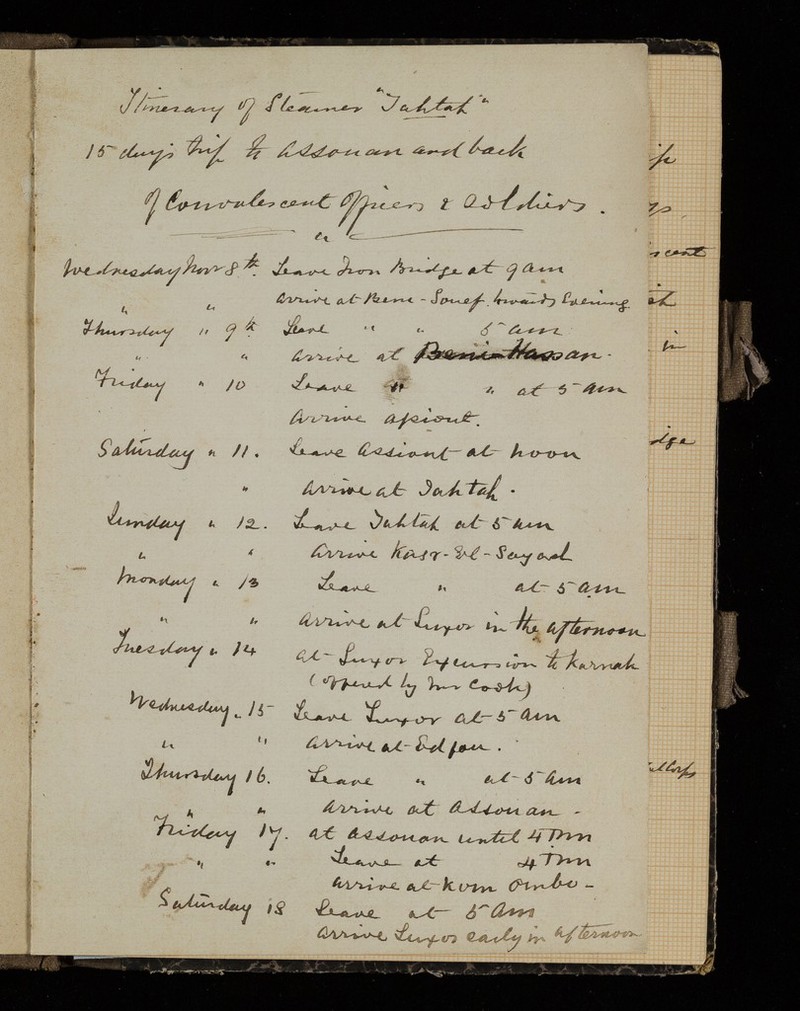 Itinerary of Steamer "Tahtah"
15 days trip to Assouan and back
of Convalescent Officers & Soldiers.
Wednesday Novr 8th. Leave Iron Bridge at 9 am
" " arrive at Beni-Souef towards Evening
Thursday " 9th Leave " " 5 am
" " arrive at Beni Hassan.
Friday " 10 Leave " " at 5 am
Arrive Assiout.
Saturday " 11. Leave Assiout at noon
" arrive at Tahtah.
Sunday " 12. Leave Tahtah at 5 am
" " Arrive Kasr-El-Sayad
Monday " 13 Leave " at 5 am
" " Arrive at Luxor in the afternoon
Tuesday " 14 at Luxor Excursion to Karnak
(offered by Mr Cook)
Wednesday " 15 Leave Luxor at 5 am
" " arrive at Edfou.
Thursday 16. Leave " at 5 am
" " Arrive at Assouan -
Friday 17. at Assouan until 4 pm
" " Leave at 4 pm
arrive at Kom Ombo -
Saturday 18 Leave at 5 am
Arrive Luxor early in afternoon